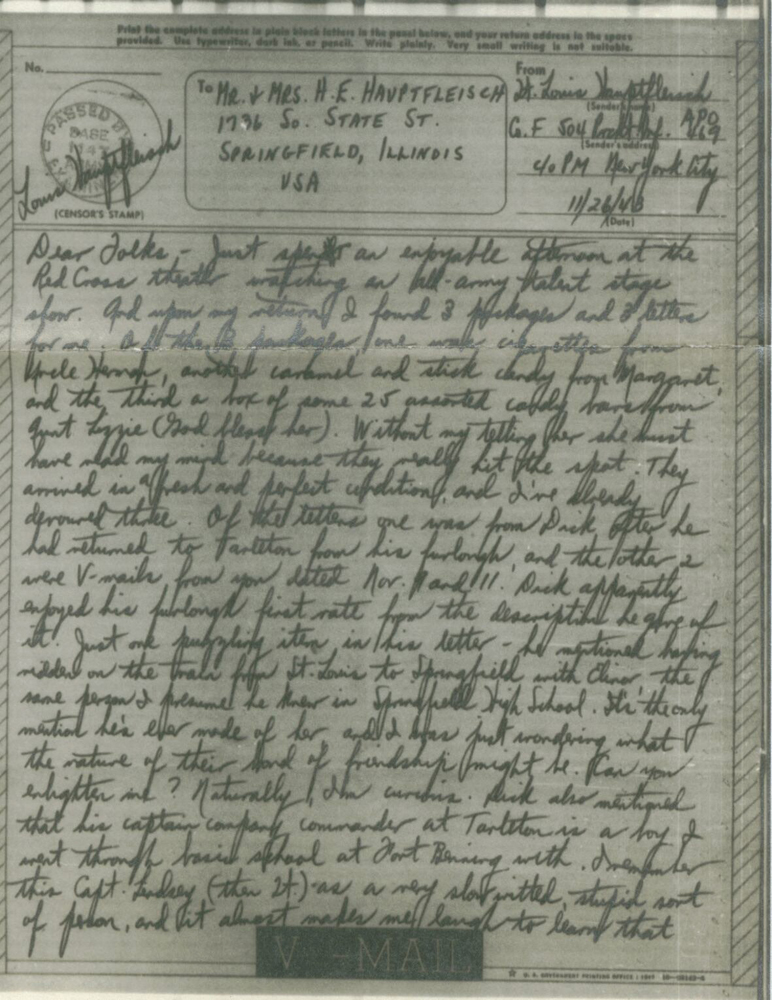 Print the complete address in plain block letters in the panel below, and your return address in the space
provided. Use typewriter, dark ink, or pencil. Write plainly. Very small writing is not suitable.
No.
PASSED BY
BASE
Louis Hauptfleisch
(CENSOR'S STAMP)
To MR. & MRS. H.E. HAUPTFLEISCH
1736 SO. STATE ST.
SPRINGFIELD, ILLINOIS
USA
From
Lt. Louis Hauptfleisch
(Sender's name)
Co. F 504 Prcht Inf. APO 469
(Sender's address)
c/o PM New York City
11/26/43
(Date)
Dear Folks - Just spent an enjoyable afternoon at the
Red Cross theater watching an all-army talent stage
show. And upon my return I found 3 packages and 3 letters
for me. Of the 3 packages, one was cigarettes from
Uncle Herman, another caramel and stick candy from Margaret,
and the third a box of some 25 assorted candy bars from
Aunt Lizzie (God bless her). Without my telling her she must
have read my mind because they really hit the spot. They
arrived in a fresh and perfect condition, and I've already
devoured three. Of the letters one was from Dick after he
had returned to Tarleton from his furlough, and the other 2
were V-mails from you dated Nov. and 11. Dick apparently
enjoyed his furlough first rate from the description he gave of
it. Just one puzzling item in his letter - he mentioned having
ridden on the train from St. Louis to Springfield with Elinor the
same person I presume he knew in Springfield High School. It's the only
mention he's ever made of her and I was just wondering what
the nature of their bond of friendship might be. Can you
enlighten me? Naturally, I'm curious. Dick also mentioned
that his captain company commander at Tarleton is a boy I
went through basic school at Fort Benning with. I remember
this Capt. Lindsey (then Lt.) as a very slow witted, stupid sort
of person, and it almost makes me laugh to learn that
V - MAIL
U. S. GOVERNMENT PRINTING OFFICE